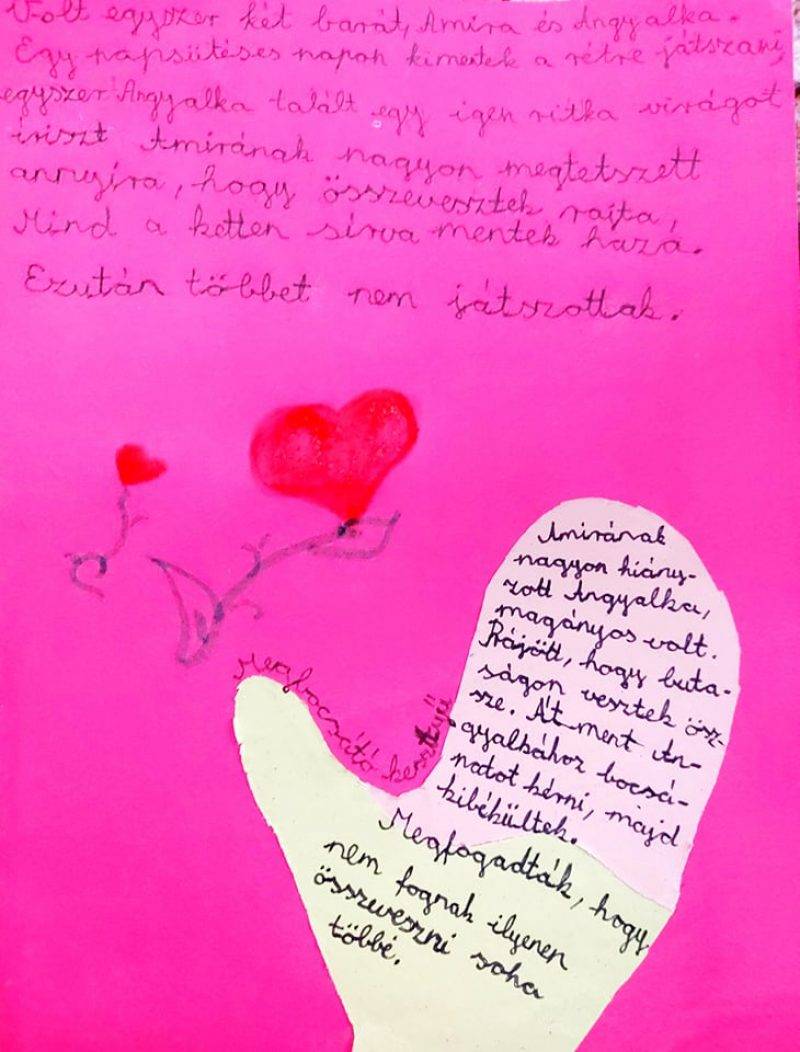 Volt egyszer két barát, Amira és Angyalka.
Egy napsütéses napon kimentek a rétre játszani,
egyszer Angyalka talált egy igen ritka virágot
íriszt Amirának nagyon megtetszett
annyira, hogy összevesztek rajta,
Mind a ketten sírva mentek haza.
Ezután többet nem játszottak.
Megbocsátó kesztyű
Amirának
nagyon hiány-
zott Angyalka,
magányos volt.
Rájött, hogy buta-
ságon vesztek ösz-
sze. Át ment An-
gyalkához bocsá-
natot kérni, majd
kibékültek.
Megfogadták, hogy
nem fognak ilyenen
összveszni soha
többé.